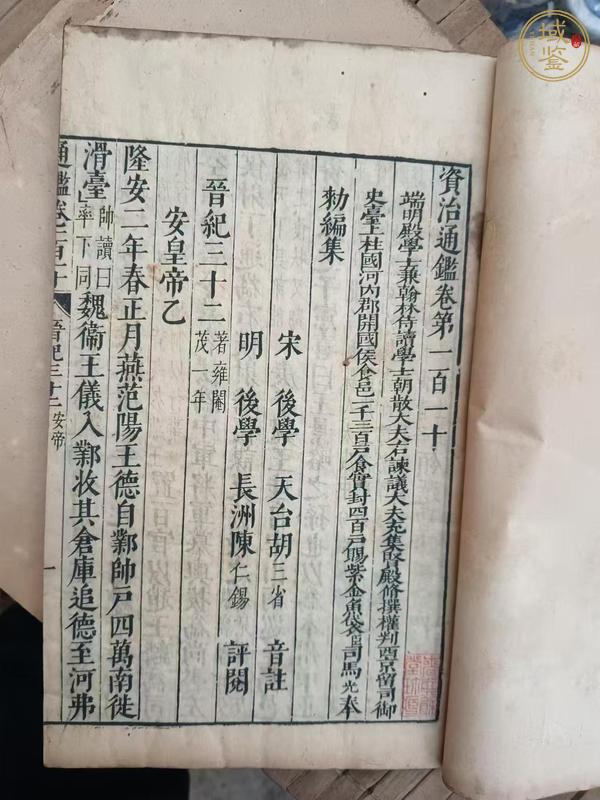 資治通鑑卷第一百一十
端明殿學士兼翰林侍讀學士朝散大夫右諫議大夫充集賢殿修撰權判西京留司御
史臺上柱國河內郡開國侯食邑一千三百戶食實封四百戶賜紫金魚袋臣司馬光奉
勑編集
宋 後學 天台胡三省 音註
明 後學 長洲陳仁錫 評閱
晉紀三十二 著雍閹茂一年
安皇帝乙
隆安二年春正月燕范陽王德自鄴帥戶四萬南徙
滑臺 帥讀曰率下同 魏衞王儀入鄴收其倉庫追德至河弗
通鑑卷一百一十 晉紀三十二 安帝 一
域鑒